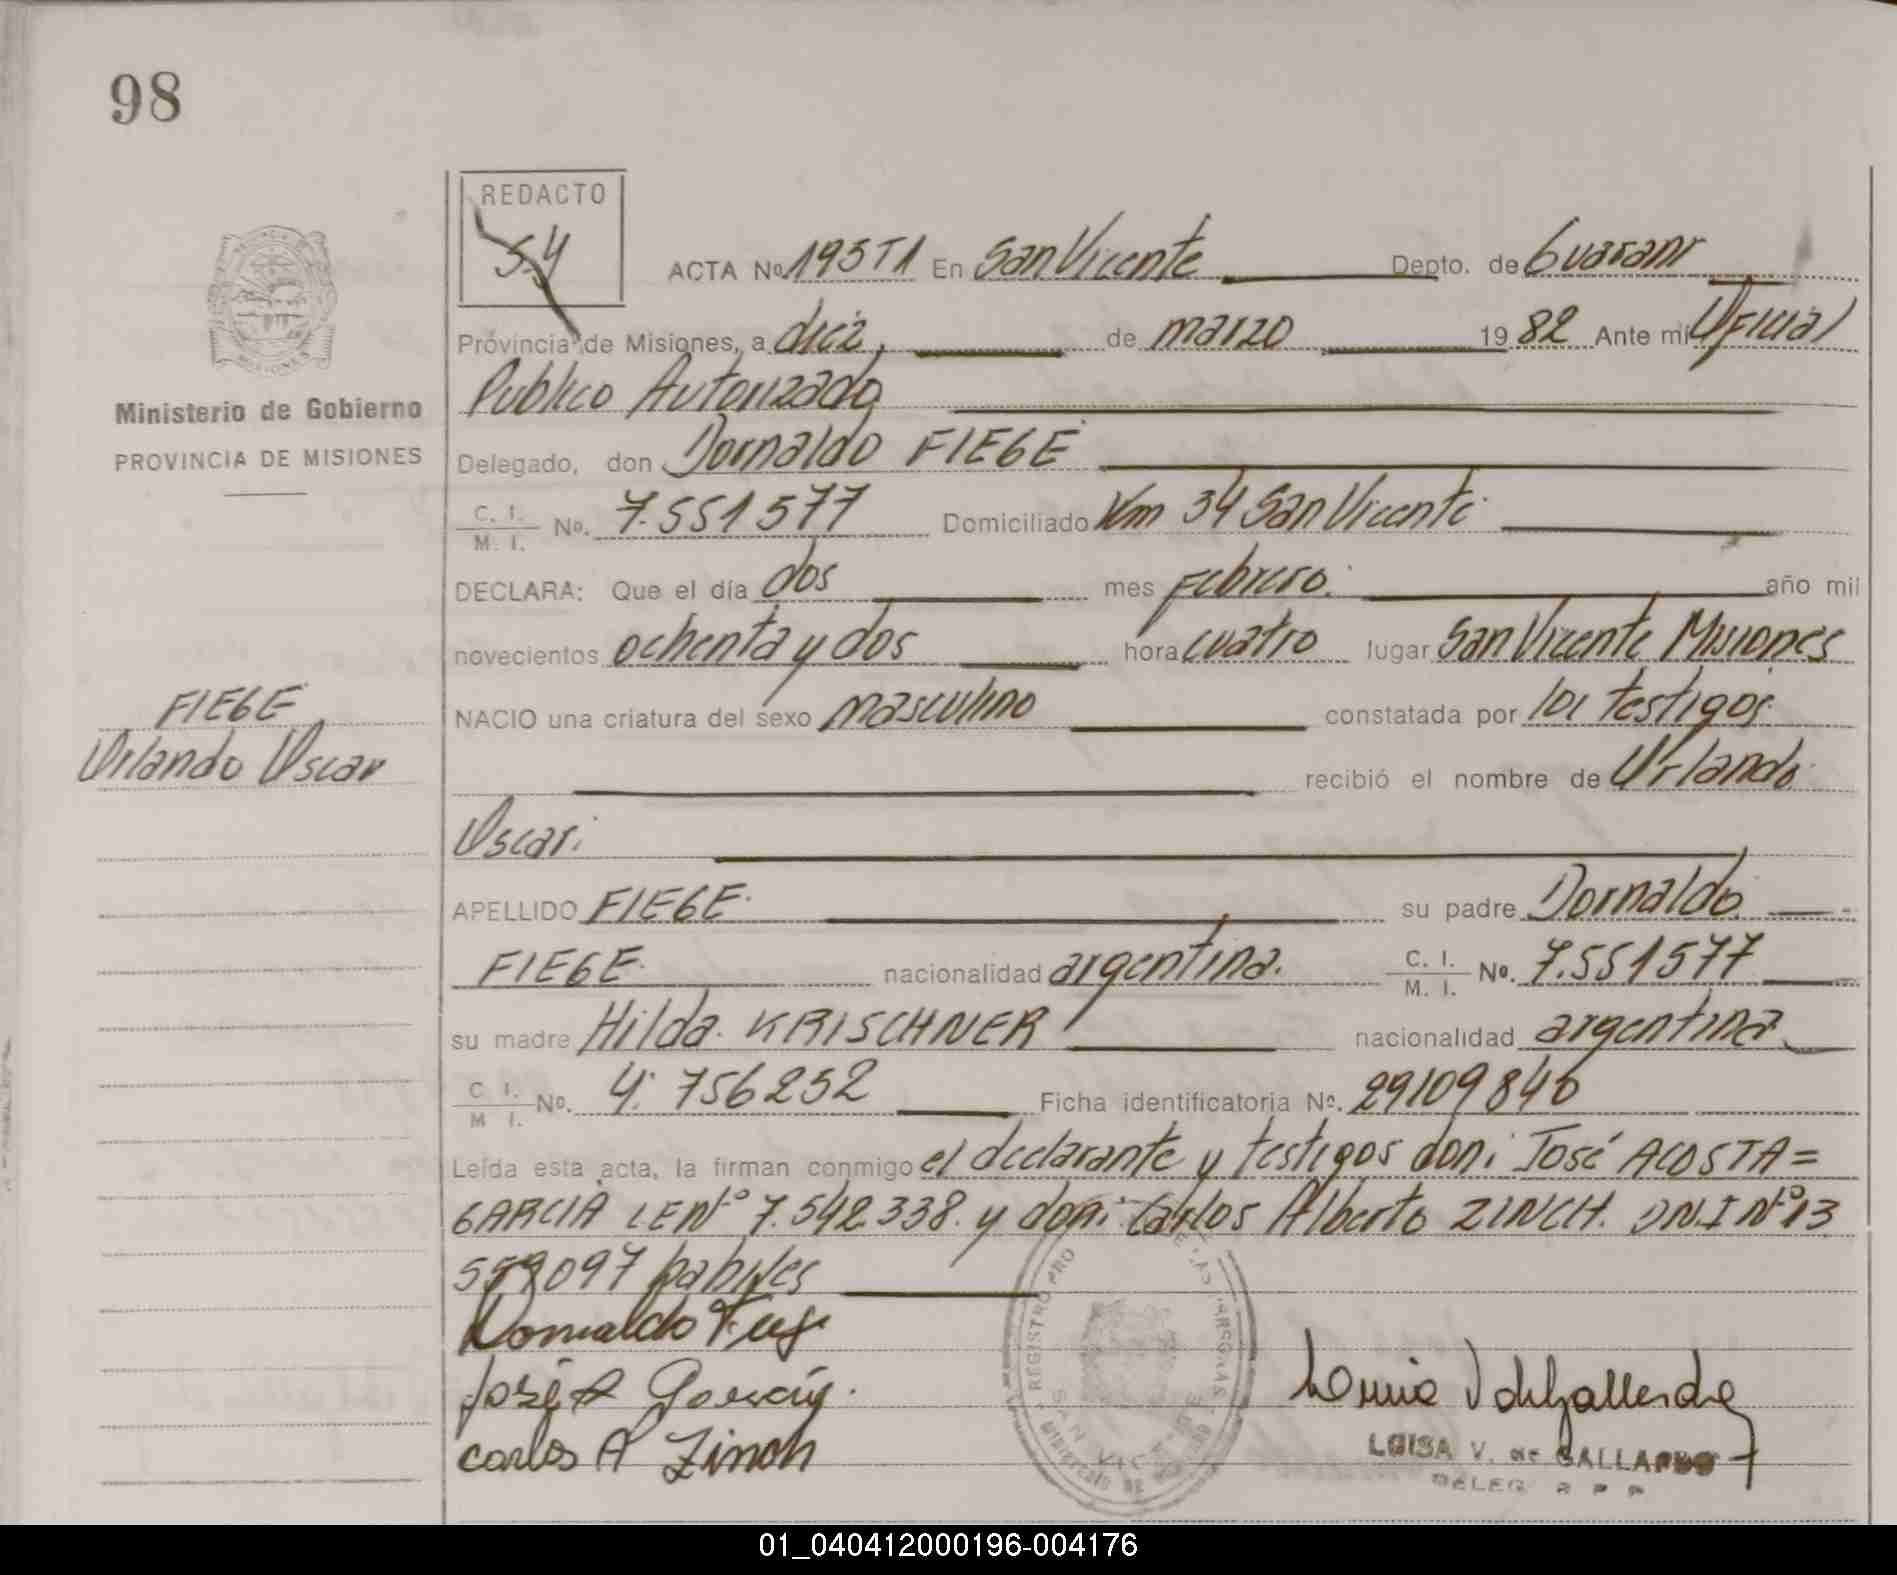 98
REDACTO
S.Y
ACTA Nº 193T1 En San Vicente Depto. de Guarani
Provincia de Misiones, a diez, de marzo 19 82 Ante mi Oficial
Publico Autorizado
Ministerio de Gobierno
PROVINCIA DE MISIONES
Delegado, don Dornaldo FIEGE
C. I. / M. I. Nº. 7.551577 Domiciliado Km 34 San Vicente
DECLARA: Que el día dos mes Febrero. año mil
novecientos ochenta y dos hora cuatro lugar San Vicente Misiones
NACIO una criatura del sexo masculino constatada por los testigos.
FIEGE
Orlando Oscar
recibió el nombre de Orlando
Oscar.
APELLIDO FIEGE. su padre Dornaldo
FIEGE. nacionalidad argentina. C. I. / M. I. Nº. 7.551577
su madre Hilda. KRISCHNER nacionalidad argentina
C I. / M I. Nº. 4. 756252 Ficha identificatoria Nº. 29109846
Leída esta acta, la firman conmigo el declarante y testigos don: José ACOSTA=
GARCIA LE Nº 7.542.338. y don: Carlos Alberto ZINCH. DN.I Nº 13
559097 habiles
José A García.
Carlos A Zinch
REGISTRO PRO
LAS PERSONAS
SAN VICENTE
LUISA V. de GALLARDO
DELEG R P P
01_040412000196-004176